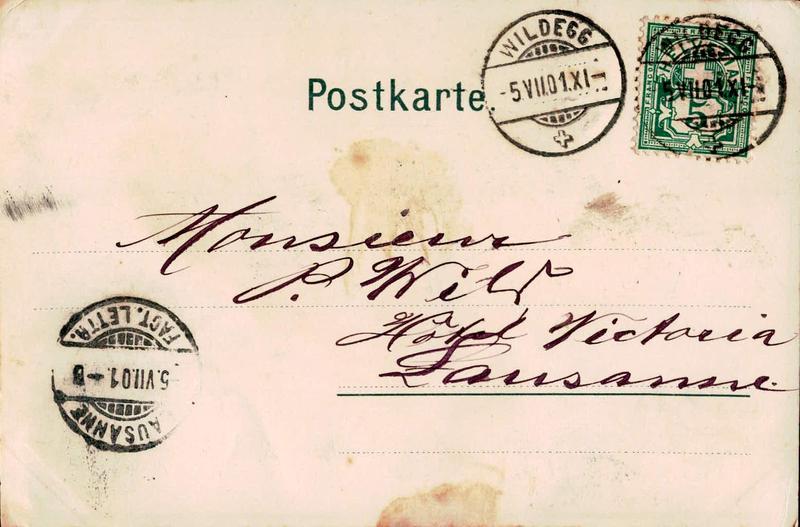 Postkarte.
WILDEGG
-5.VII.01.XI-
HELVETIA
5
Monsieur
P. Wild
Hôtel Victoria
Lausanne.
LAUSANNE
-5.VII.01.-8
FACT. LETTR.